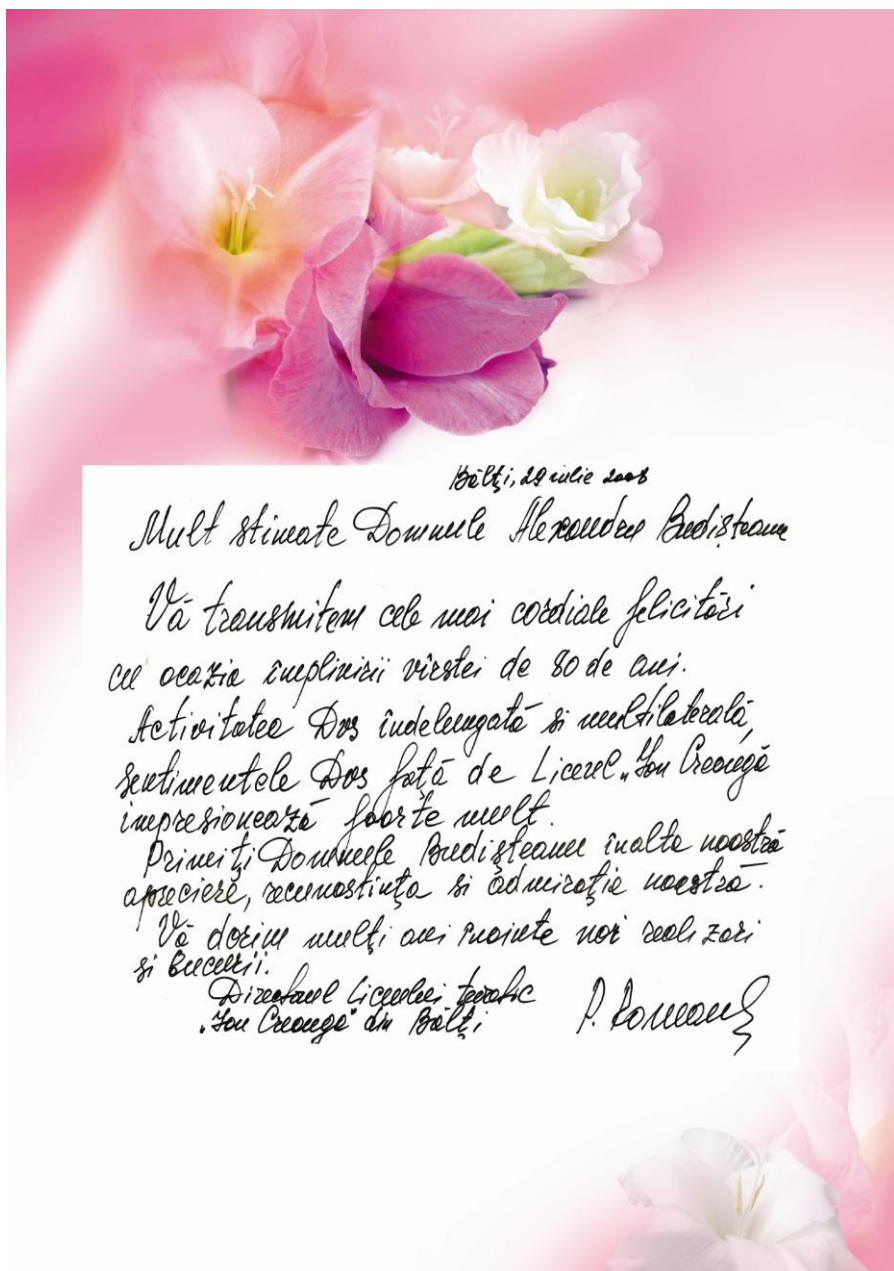 Bălţi, 29 iulie 2008
Mult stimate Domnule Alexandru Budişteanu
Vă transmitem cele mai cordiale felicitări
cu ocazia împlinirii vîrstei de 80 de ani.
Activitatea Dvs îndelungată si multilaterală,
sentimentele Dvs faţă de Liceul „Ion Creangă
impresionează foarte mult.
Primiţi Domnule Budişteanu înalta noastră
apreciere, recunostinţa si admiraţie noastră.
Vă dorim mulţi ani înainte noi realizari
si bucurii.
Directorul Liceului teoretic
„Ion Creangă" din Bălţi P.